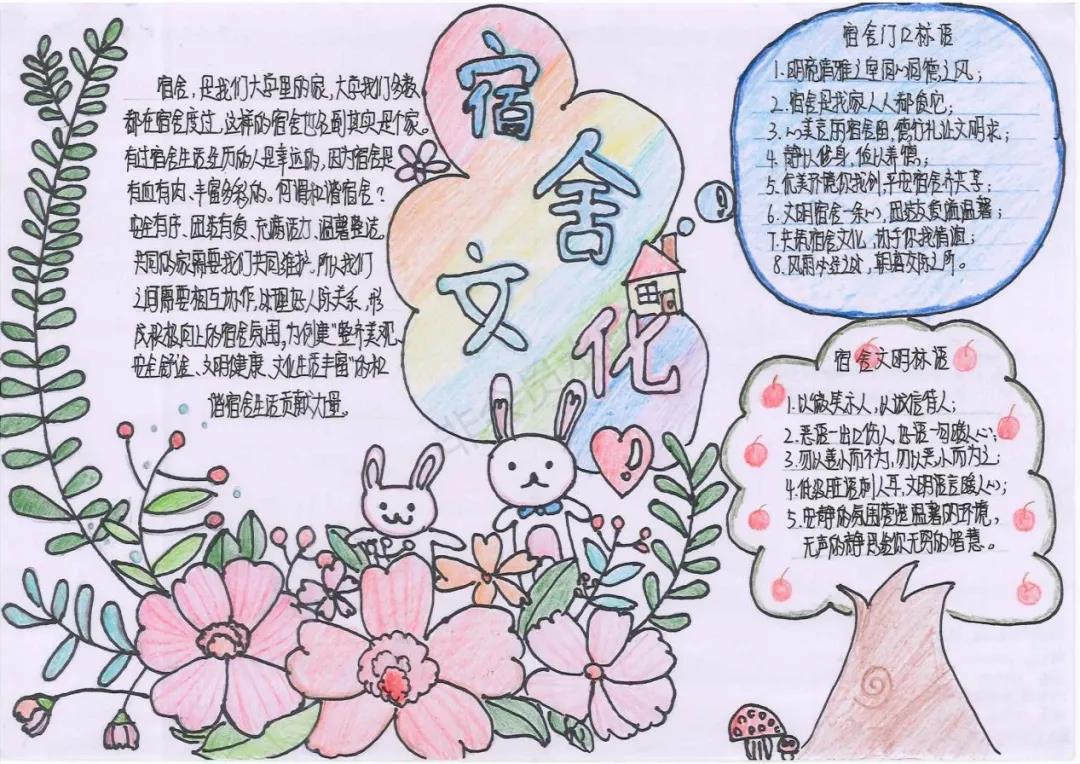 宿舍文化
宿舍，是我们大学里的家，大学我们多数
都在宿舍度过，这样的宿舍也及到其实是个家。
有过宿舍生活经历的人是幸运的，因为宿舍是
有血有肉、丰富多彩的。何谓和谐宿舍？
安全有序、团结有爱、充满活力、温馨整洁。
共同的家需要我们共同维护，所以我们
之间需要相互协作，处理好人际关系，形
成积极向上的宿舍氛围，为创建“整齐美观、
安全舒适、文明健康、文化生活丰富”的和
谐宿舍生活贡献力量。
宿舍门口标语
1.明亮清雅之室同心同德之风；
2.宿舍是我家人人都爱它；
3.心美言丽宿舍田，德行礼让文明求；
4.静以修身，俭以养德；
5.优美环境你我创，平安宿舍齐共享；
6.文明宿舍一条心，团结友爱满温馨；
7.共筑宿舍文化，动于你我情谊；
8.风雨必经之处，朝喜交际之所。
宿舍文明标语
1.以微笑示人，以诚信待人；
2.恶语一出口伤人，好语一句暖人心；
3.勿以善小而不为，勿以恶小而为之；
4.低级脏话刺人耳，文明语言暖人心；
5.安静的氛围营造温馨的环境，
无声的静思给你无穷的智慧。